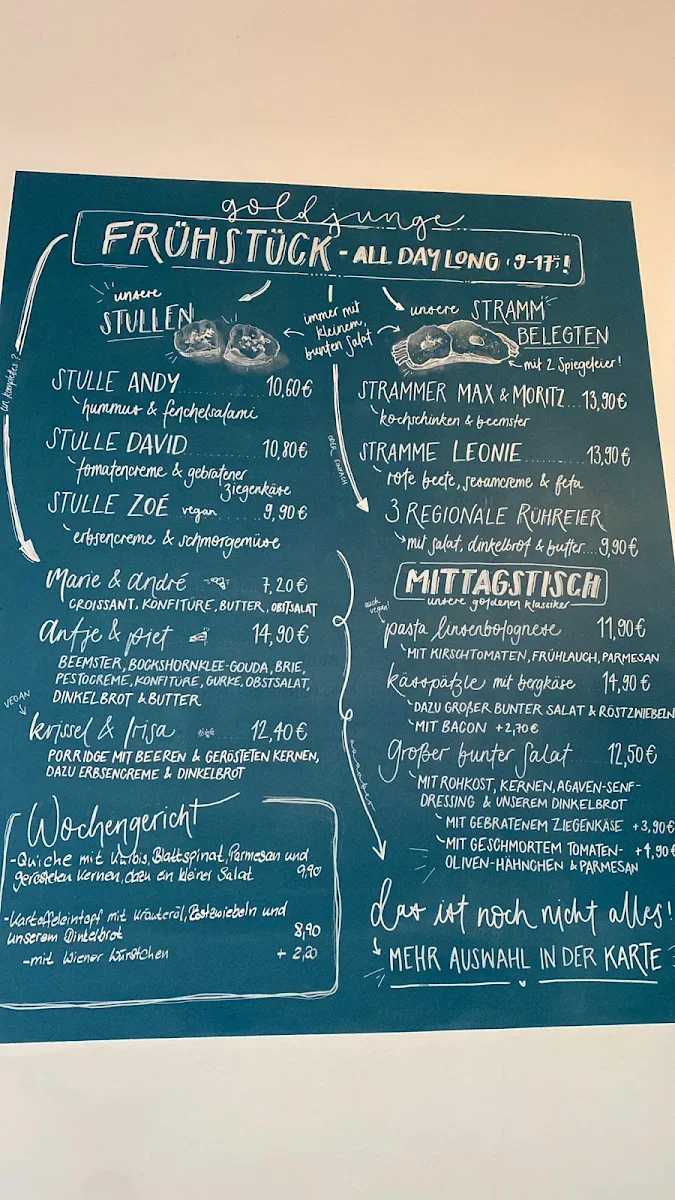 goldjunge
FRÜHSTÜCK - ALL DAY LONG (9-17)!
unsere
STULLEN
immer mit
kleinem,
bunten Salat
unsere STRAMM
BELEGTEN
mit 2 Spiegeleier!
STULLE ANDY 10,60€
hummus & fenchelsalami
STULLE DAVID 10,80€
tomatencreme & gebratener
ziegenkäse
STULLE ZOÉ vegan 9,90€
erbsencreme & schmorgemüse
STRAMMER MAX & MORITZ 13,90€
kochschinken & beemster
STRAMME LEONIE 13,90€
rote beete, sesamcreme & feta
ODER EINFACH
3 REGIONALE RÜHREIER
mit salat, dinkelbrot & butter.... 9,90€
Marie & andré 7,20€
CROISSANT, KONFITÜRE, BUTTER, OBSTSALAT
antje & piet 14,90€
BEEMSTER, BOCKSHORNKLEE-GOUDA, BRIE,
PESTOCREME, KONFITÜRE, GURKE, OBSTSALAT,
DINKELBROT & BUTTER
VEGAN
krissel & frisa 12,40€
PORRIDGE MIT BEEREN & GERÖSTETEN KERNEN,
DAZU ERBSENCREME & DINKELBROT
MITTAGSTISCH
unsere goldenen klassiker
auch
vegan!
pasta linsenbolognese 11,90€
MIT KIRSCHTOMATEN, FRÜHLAUCH, PARMESAN
kässpätzle mit bergkäse 14,90€
DAZU GROßER BUNTER SALAT & RÖSTZWIEBELN
MIT BACON +2,70€
großer bunter Salat 12,50€
MIT ROHKOST, KERNEN, AGAVEN-SENF-
DRESSING & UNSEREM DINKELBROT
MIT GEBRATENEM ZIEGENKÄSE +3,90€
MIT GESCHMORTEM TOMATEN- +4,90€
OLIVEN-HÄHNCHEN & PARMESAN
Wochengericht
-Quiche mit Kürbis, Blattspinat, Parmesan und
gerösteten Kernen, dazu ein kleiner Salat 9,90
-Kartoffeleintopf mit Kräuteröl, Röstzwiebeln und
unserem Dinkelbrot 8,90
-mit Wiener Würstchen + 2,20
das ist noch nicht alles!
MEHR AUSWAHL IN DER KARTE